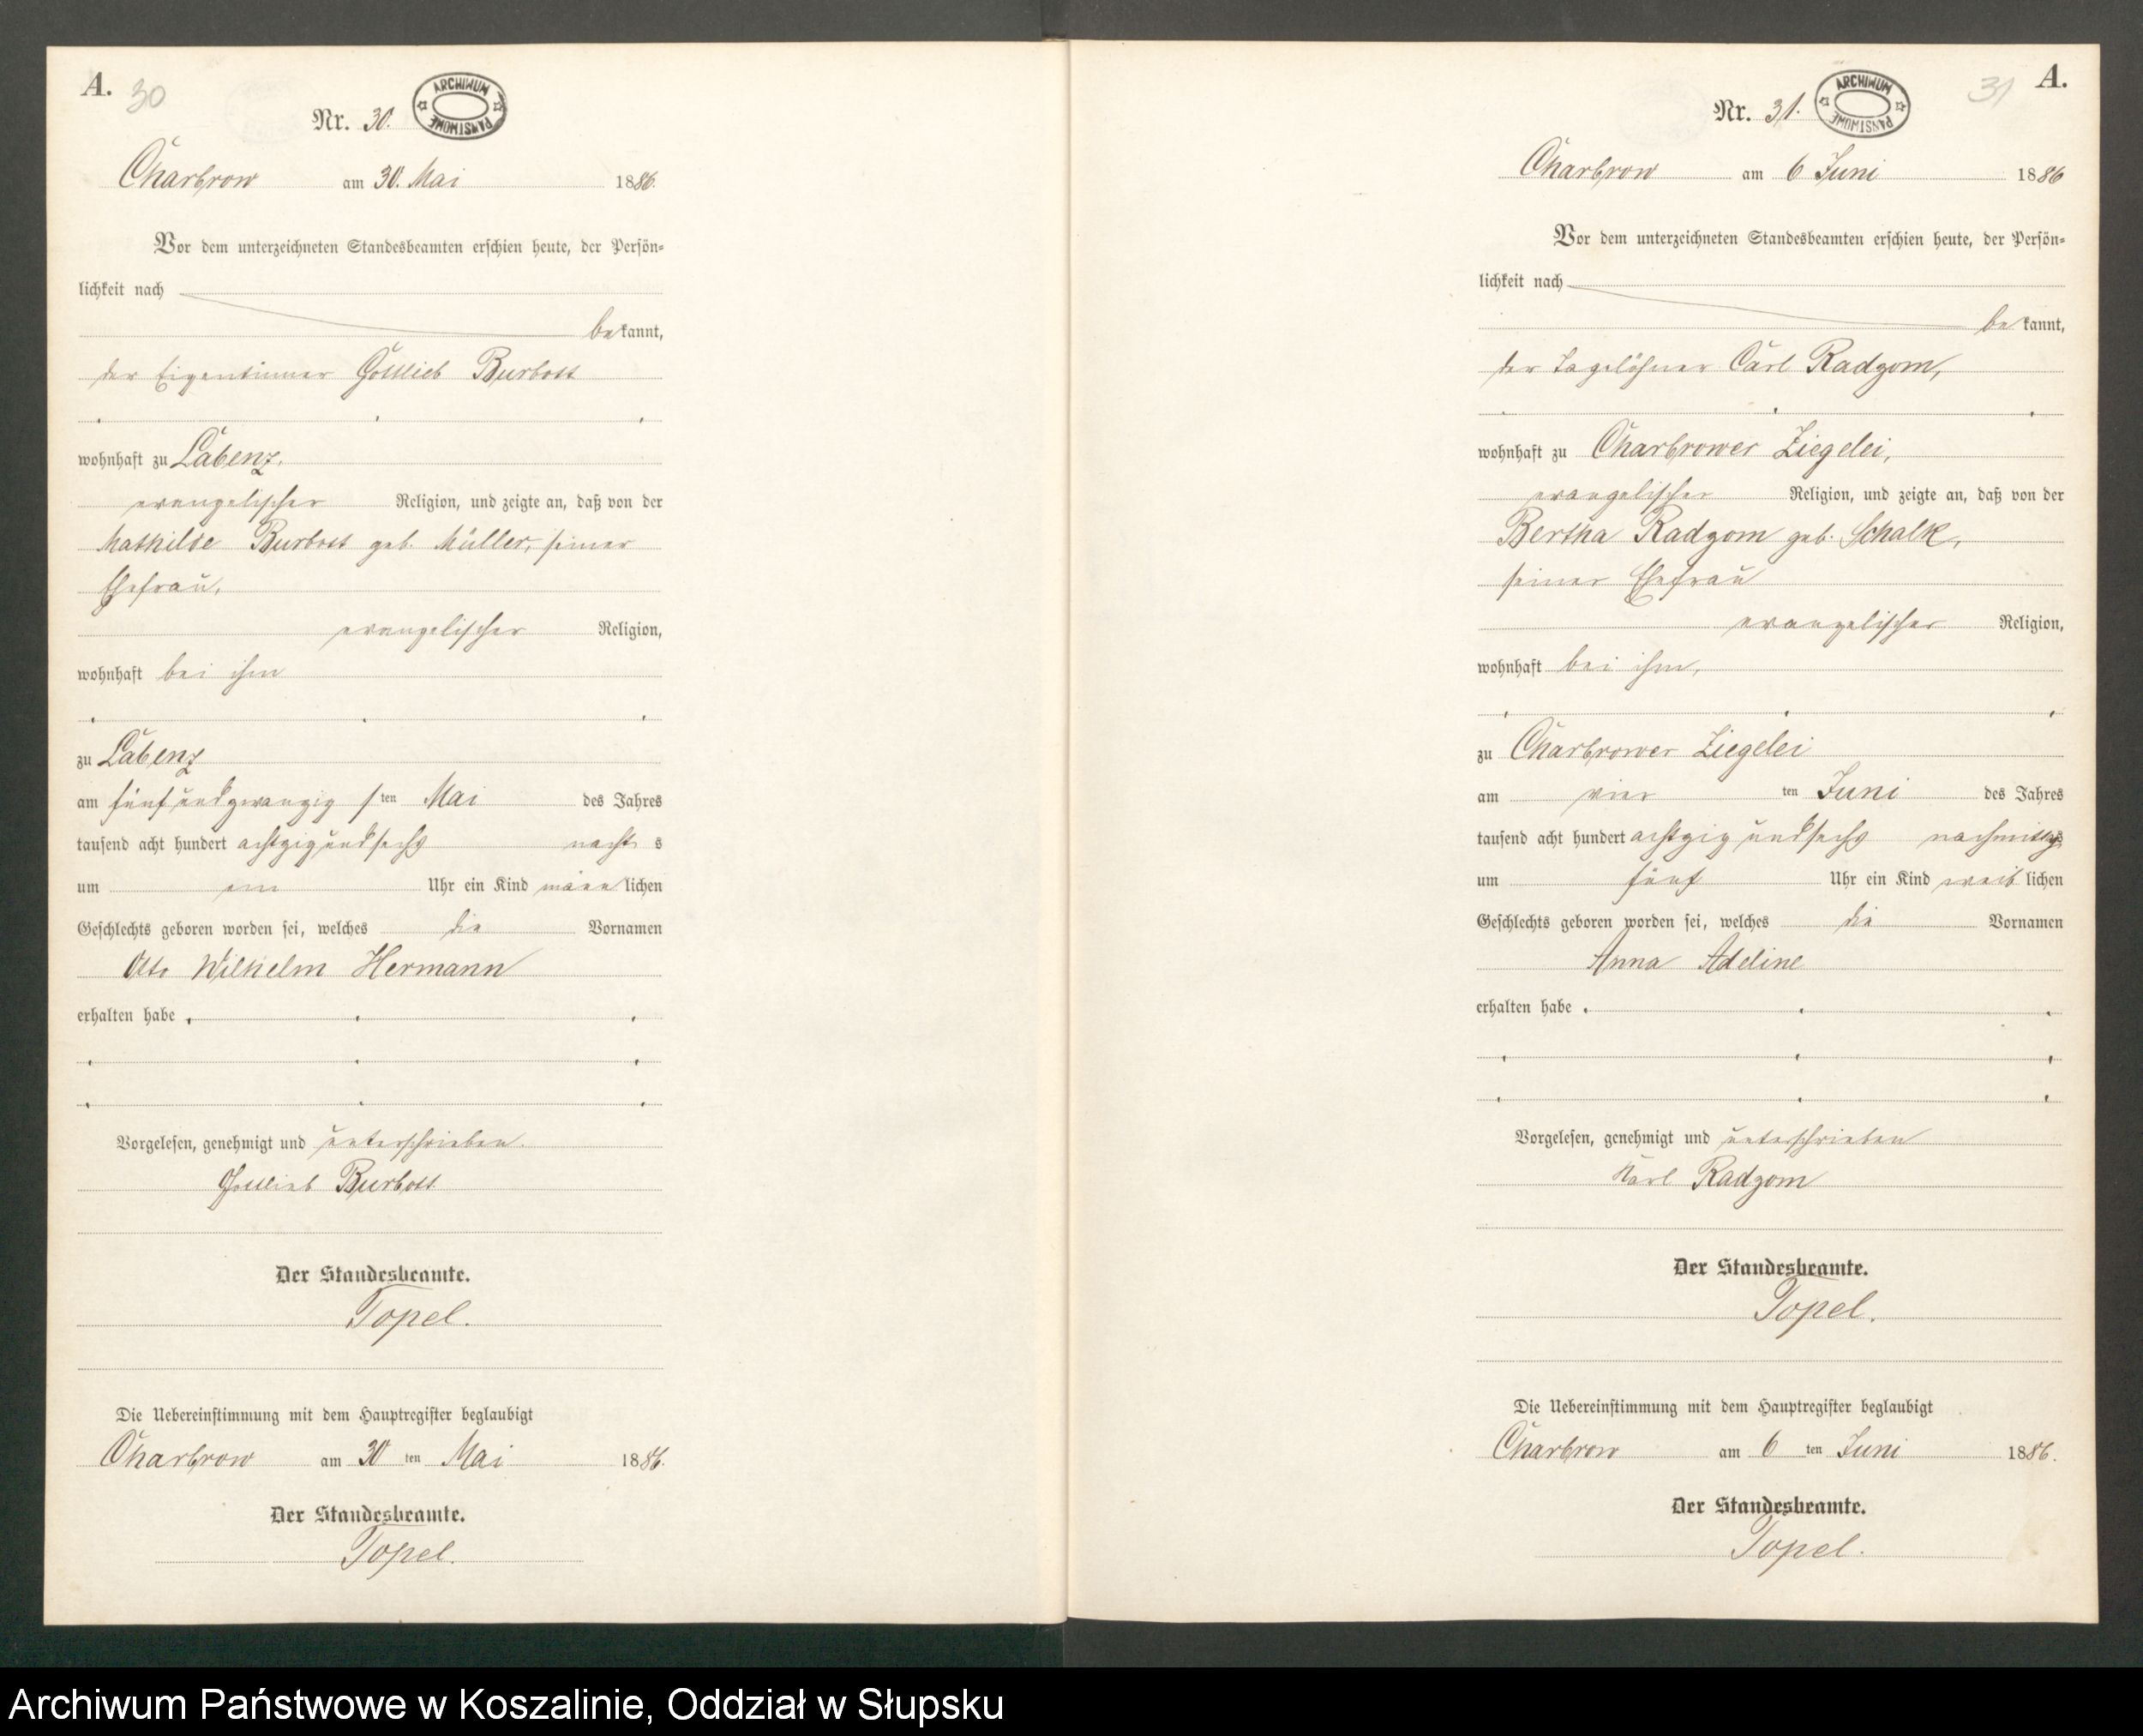 A. 30
Nr. 30. ARCHIWUM PAŃSTWOWE
Charbrow am 30. Mai 1886.
Vor dem unterzeichneten Standesbeamten erschien heute, der Persön-
lichkeit nach
bekannt,
der Eigentümer Gottlieb Burbott
wohnhaft zu Labenz,
evangelischer Religion, und zeigte an, daß von der
Mathilde Burbott geb. Müller, seiner
Ehefrau,
evangelischer Religion,
wohnhaft bei ihm
zu Labenz
am fünfundzwanzigsten Mai des Jahres
tausend acht hundert achtzigundsechs nachts
um ein Uhr ein Kind männlichen
Geschlechts geboren worden sei, welches die Vornamen
Otto Wilhelm Hermann
erhalten habe
Vorgelesen, genehmigt und unterschrieben.
Gottlieb Burbott
Der Standesbeamte.
Topel.
Die Uebereinstimmung mit dem Hauptregister beglaubigt
Charbrow am 30ten Mai 1886.
Der Standesbeamte.
Topel.
31 A.
Nr. 31. ARCHIWUM PAŃSTWOWE
Charbrow am 6 Juni 1886
Vor dem unterzeichneten Standesbeamten erschien heute, der Persön-
lichkeit nach
bekannt,
der Tagelöhner Carl Radzom,
wohnhaft zu Charbrower Ziegelei,
evangelischer Religion, und zeigte an, daß von der
Bertha Radzom geb. Schalk,
seiner Ehefrau
evangelischer Religion,
wohnhaft bei ihm,
zu Charbrower Ziegelei
am vierten Juni des Jahres
tausend acht hundert achtzigundsechs nachmittags
um fünf Uhr ein Kind weiblichen
Geschlechts geboren worden sei, welches die Vornamen
Anna Adeline
erhalten habe
Vorgelesen, genehmigt und unterschrieben
Karl Radzom
Der Standesbeamte.
Topel.
Die Uebereinstimmung mit dem Hauptregister beglaubigt
Charbrow am 6ten Juni 1886.
Der Standesbeamte.
Topel.
Archiwum Państwowe w Koszalinie, Oddział w Słupsku